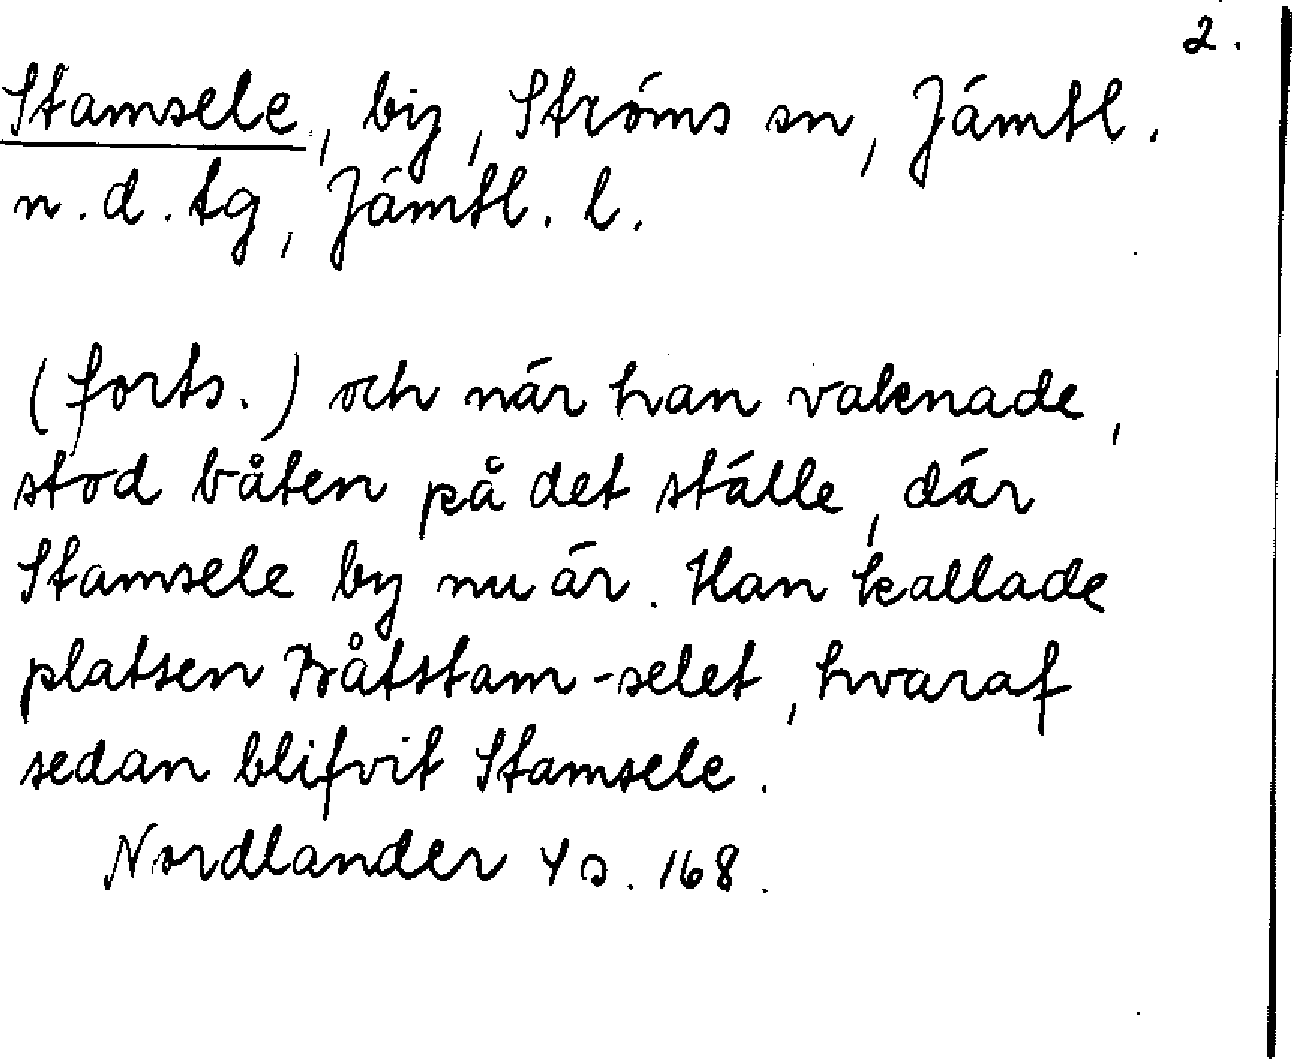 2.
Stamsele, by, Ströms sn, Jämtl.
n.d.tg, Jämtl. l.
(forts.) och när han vaknade,
stod båten på det ställe, där
Stamsele by nu är. Han kallade
platsen Båtstam-selet, hvaraf
sedan blifvit Stamsele.
Nordlander 4 s. 168.